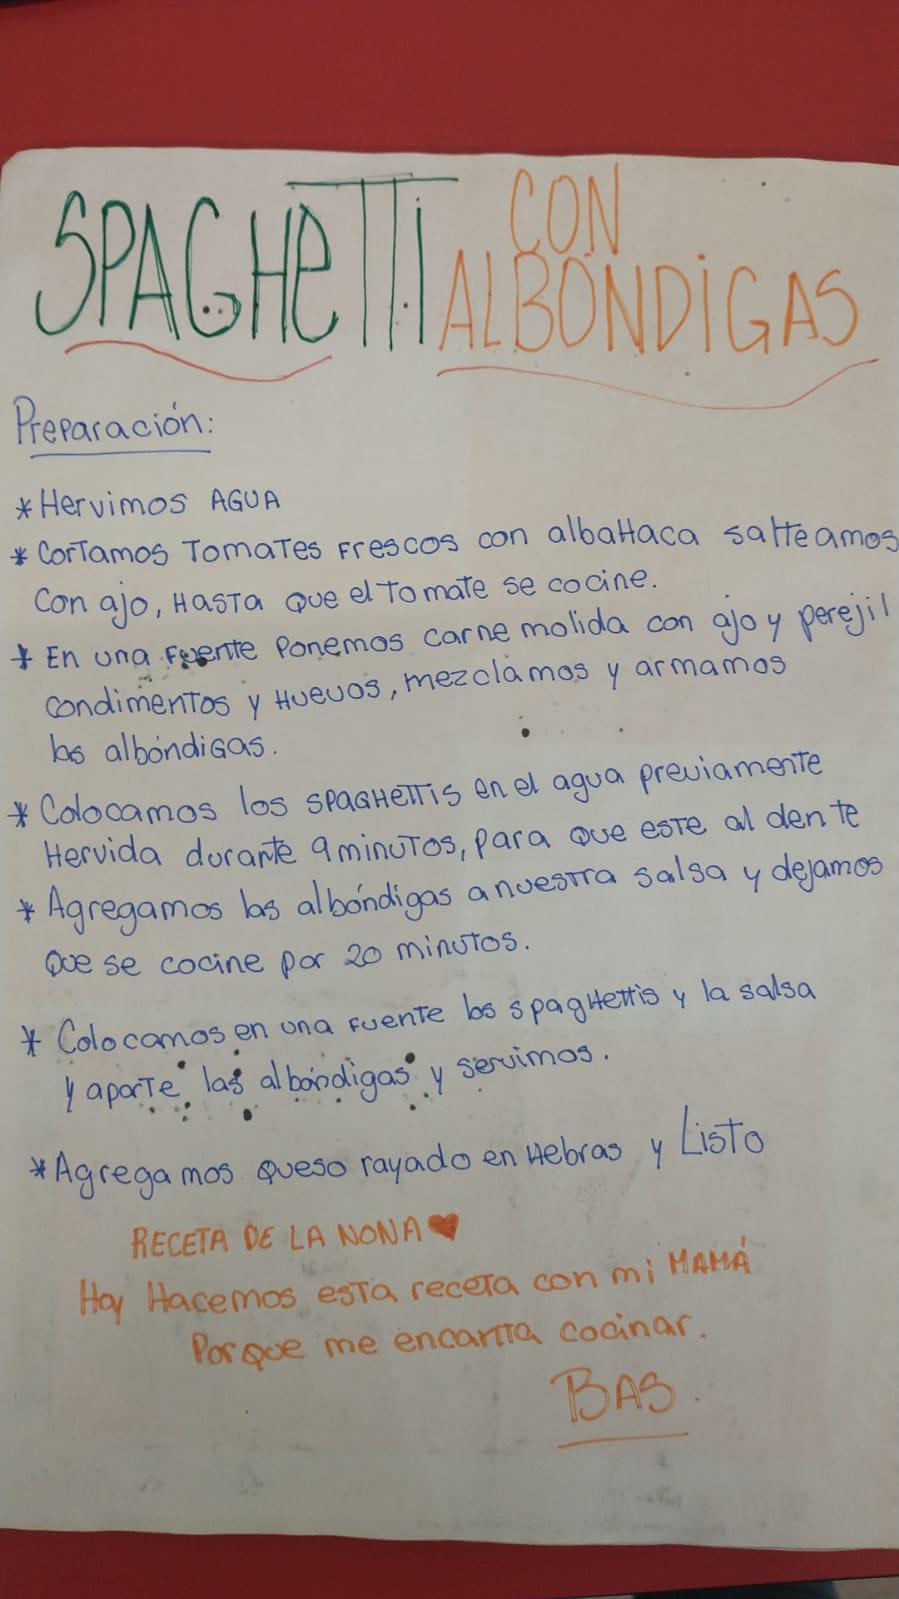 SPAGHETTI CON
ALBÓNDIGAS
Preparación:
* Hervimos AGUA
* Cortamos Tomates Frescos con albahaca salteamos
con ajo, Hasta que el tomate se cocine.
* En una Fuente Ponemos carne molida con ajo y perejil
condimentos y Huevos, mezclamos y armamos
las albóndigas.
* Colocamos los SPAGHETTIS en el agua previamente
Hervida durante 9 minutos, para que este al dente
* Agregamos las albóndigas a nuestra salsa y dejamos
que se cocine por 20 minutos.
* Colocamos en una Fuente los spaghettis y la salsa
y aparte las albóndigas y servimos.
* Agregamos queso rayado en Hebras y Listo
RECETA DE LA NONA ♥
Hoy Hacemos esta receta con mi MAMÁ
Porque me encanta cocinar.
BAS.